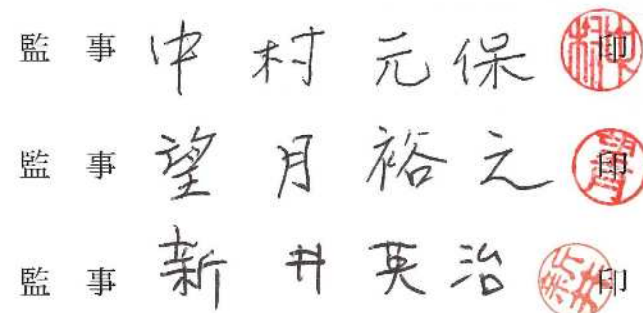 監事 中村元保 印
監事 望月裕之 印
監事 新井英治 印